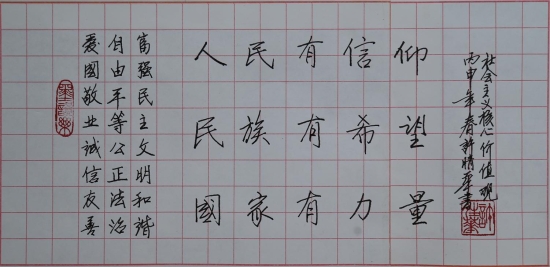 人民有信仰
民族有希望
國家有力量
富强民主文明和諧
自由平等公正法治
愛國敬业诚信友善
社会主义核心价值观
丙申年春許晴華書